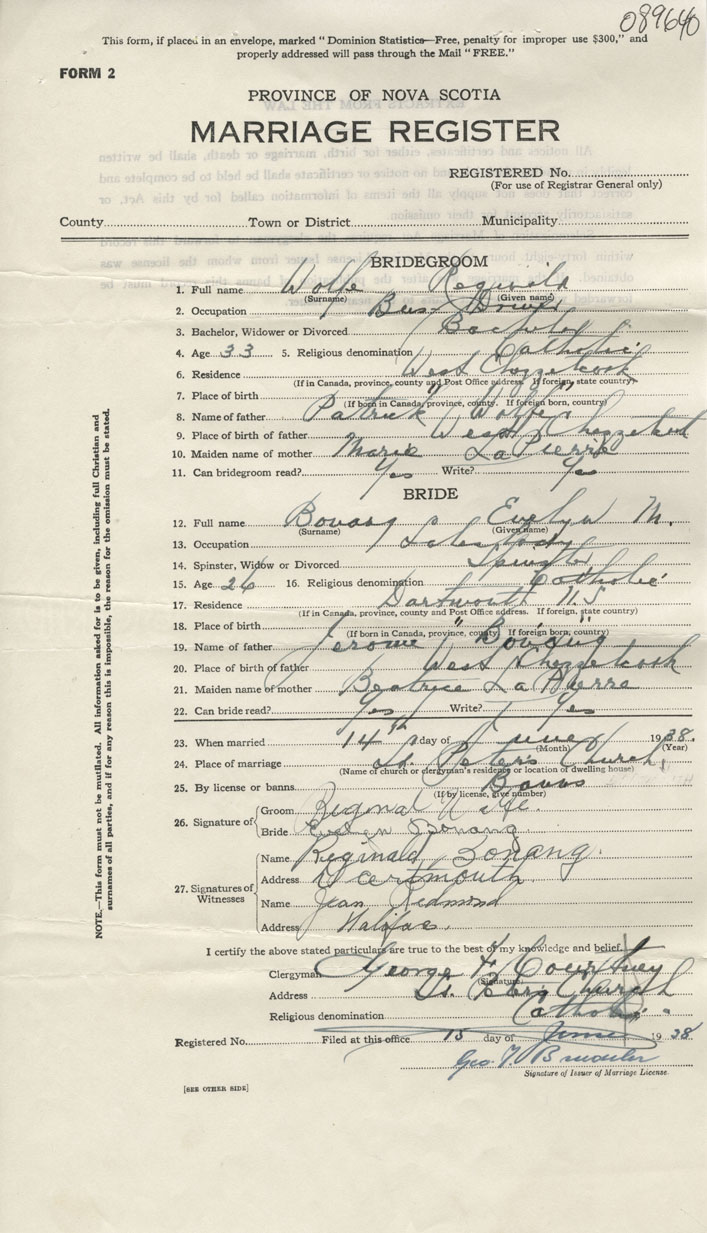 089640
This form, if placed in an envelope, marked "Dominion Statistics—Free, penalty for improper use $300," and
properly addressed will pass through the Mail "FREE."
FORM 2
PROVINCE OF NOVA SCOTIA
MARRIAGE REGISTER
REGISTERED No.
(For use of Registrar General only)
County Town or District Municipality
BRIDEGROOM
1. Full name Wolfe Reginald
(Surname) (Given name)
2. Occupation Bus Driver
3. Bachelor, Widower or Divorced Bachelor
4. Age 33 5. Religious denomination Catholic
6. Residence West Chezzetcook
(If in Canada, province, county and Post Office address. If foreign, state country)
7. Place of birth " "
(If born in Canada, province, county. If foreign born, country)
8. Name of father Patrick Wolfe
9. Place of birth of father West Chezzetcook
10. Maiden name of mother Marie LaPierre
11. Can bridegroom read? Yes Write? Yes
BRIDE
12. Full name Bonang Evelyn M.
(Surname) (Given name)
13. Occupation Saleslady
14. Spinster, Widow or Divorced Spinster
15. Age 26 16. Religious denomination Catholic
17. Residence Dartmouth N.S
(If in Canada, province, county and Post Office address. If foreign, state country)
18. Place of birth " "
(If born in Canada, province, county. If foreign born, country)
19. Name of father Jerome Bonang
20. Place of birth of father West Chezzetcook
21. Maiden name of mother Beatrice LaPierre
22. Can bride read? Yes Write? Yes
23. When married 14th day of June 1938.
(Month) (Year)
24. Place of marriage St. Peter's Church,
(Name of church or clergyman's residence or location of dwelling house)
25. By license or banns Banns
(If by license, give number)
26. Signature of
Groom Reginal Wolfe.
Bride Evelyn Bonang
27. Signatures of Witnesses
Name Reginald Bonang.
Address Dartmouth
Name Jean Redmond
Address Halifax.
I certify the above stated particulars are true to the best of my knowledge and belief.
Clergyman George F. Courtney
(Signature)
Address St. Peter's Church
Religious denomination Catholic
Registered No. Filed at this office 15 day of June 1938
Geo. F.
Signature of Issuer of Marriage License.
[SEE OTHER SIDE]
NOTE.—This form must not be mutilated. All information asked for is to be given, including full Christian and
surnames of all parties, and if for any reason this is impossible, the reason for the omission must be stated.